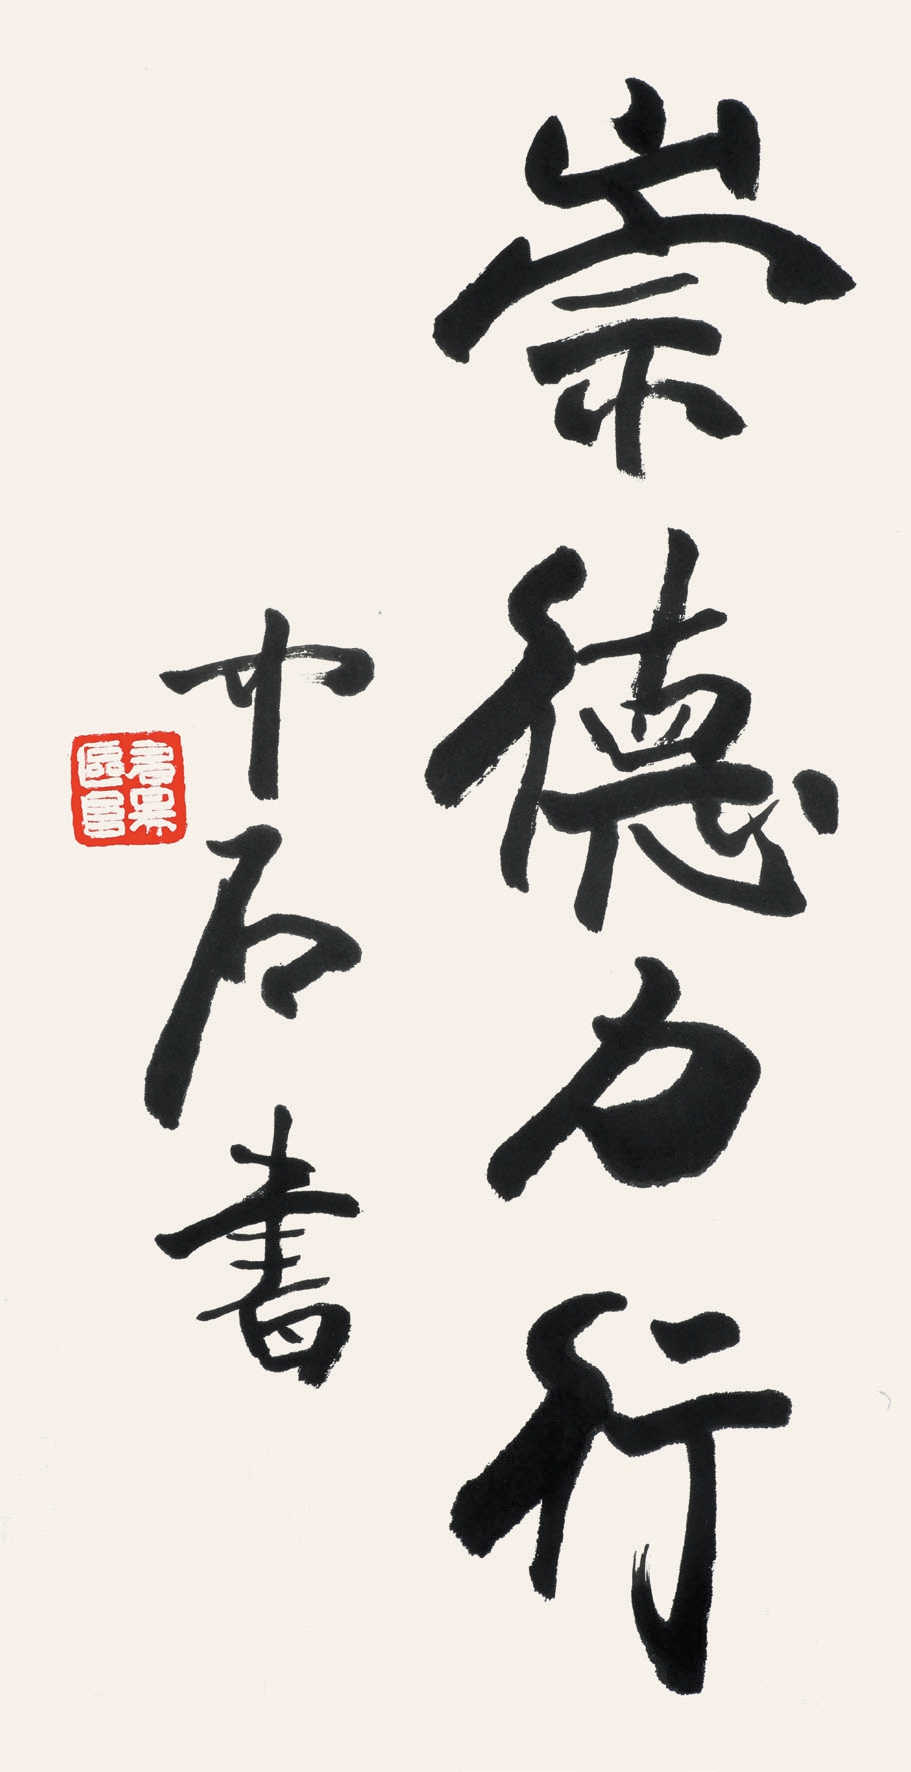 崇德力行
中石書